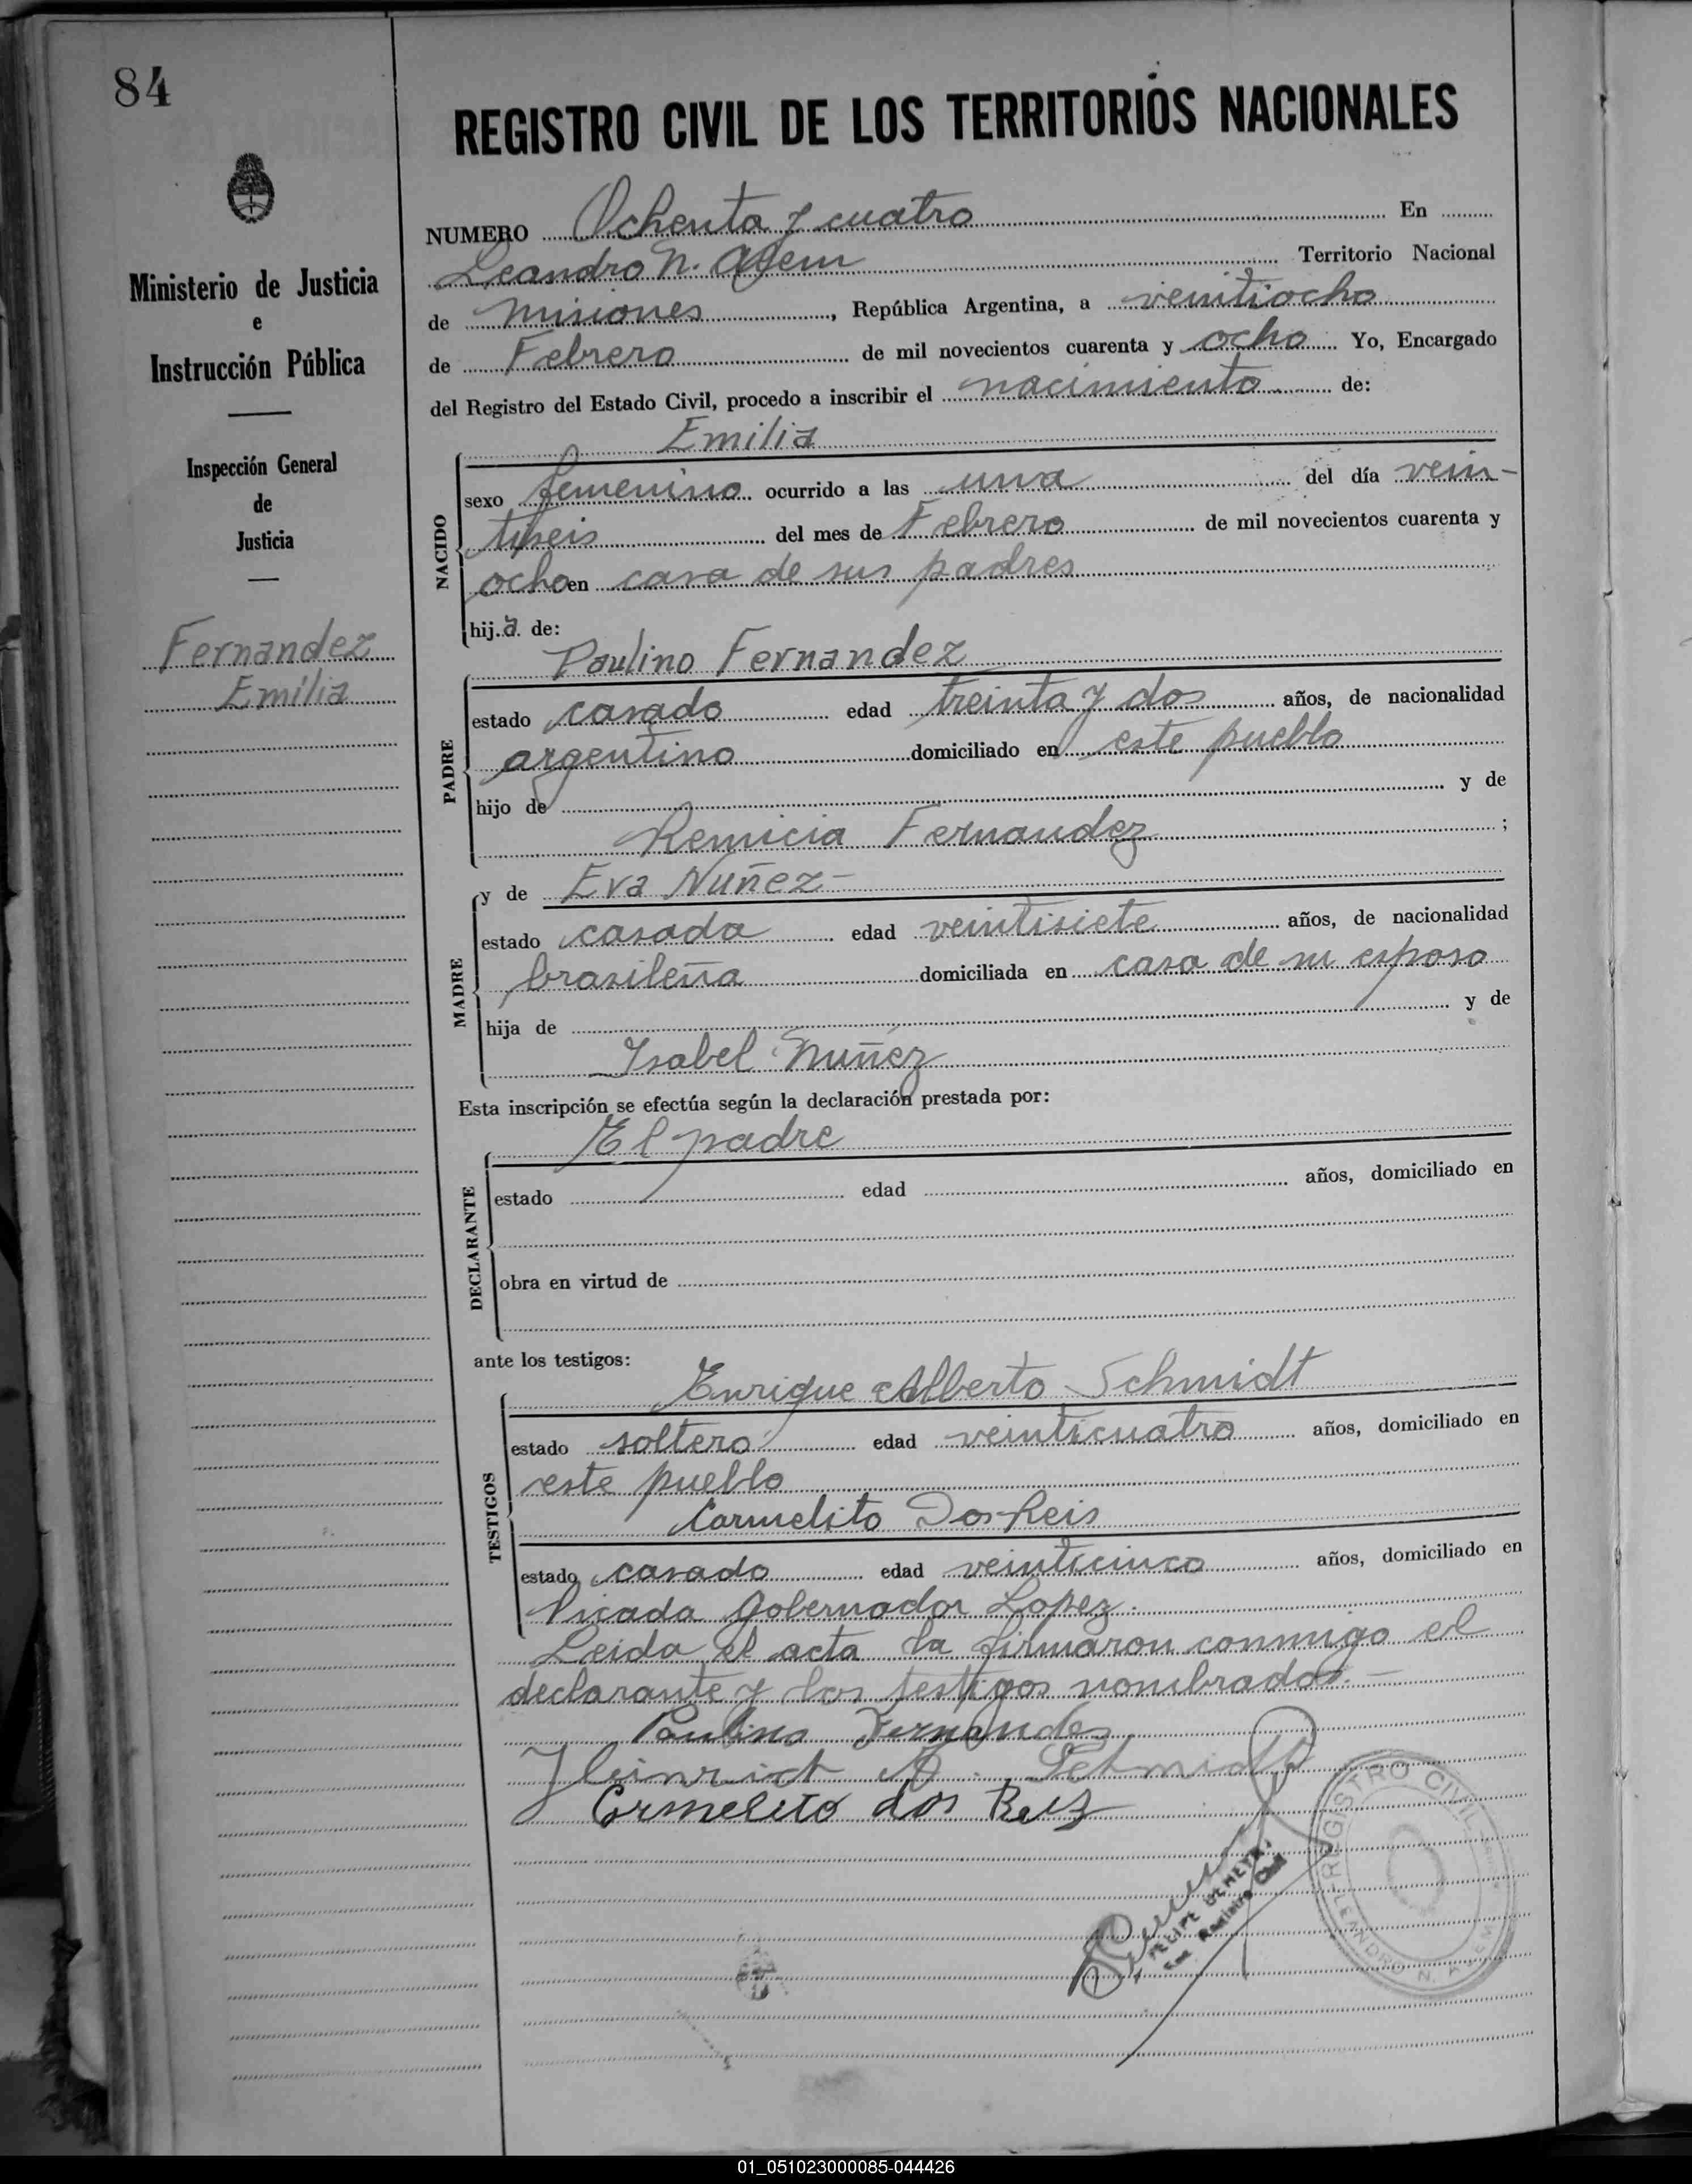 84
REGISTRO CIVIL DE LOS TERRITORIOS NACIONALES
Ministerio de Justicia
e
Instrucción Pública
Inspección General
de
Justicia
Fernandez
Emilia
NUMERO Ochenta y cuatro En
Leandro N. Alem Territorio Nacional
de Misiones, República Argentina, a veintiocho
de Febrero de mil novecientos cuarenta y ocho Yo, Encargado
del Registro del Estado Civil, procedo a inscribir el nacimiento de:
Emilia
NACIDO
sexo femenino ocurrido a las una del día vein-
tiseis del mes de Febrero de mil novecientos cuarenta y
ocho en casa de sus padres
hij.a de:
Paulino Fernandez
PADRE
estado casado edad treinta y dos años, de nacionalidad
argentino domiciliado en este pueblo
hijo de y de
Remicia Fernandez ;
y de Eva Nuñez-
MADRE
estado casada edad veintisiete años, de nacionalidad
brasileña domiciliada en casa de su esposo
hija de y de
Isabel Nuñez
Esta inscripción se efectúa según la declaración prestada por:
El padre
DECLARANTE
estado edad años, domiciliado en
obra en virtud de
ante los testigos:
Enrique Alberto Schmidt
TESTIGOS
estado soltero edad veinticuatro años, domiciliado en
este pueblo
Carmelito Dos Reis
estado casado edad veinticinco años, domiciliado en
Picada Gobernador Lopez.
Leida el acta la firmaron conmigo el
declarante y los testigos nombrados.-
Paulino Fernandes
Heinrich A. Schmidt
Cormelito dos Reis
FELIPE
Enc. Registro Civil
REGISTRO CIVIL
LEANDRO N. ALEM
01_051023000085-044426